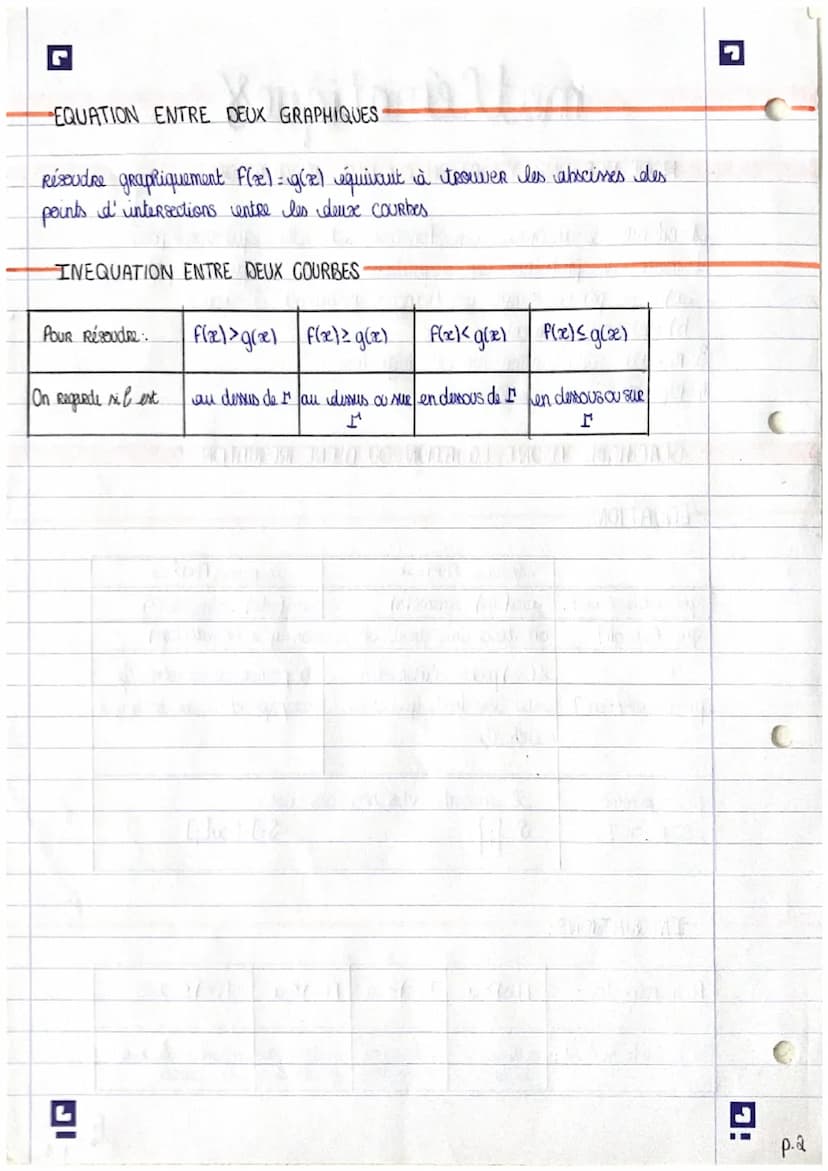 EQUATION ENTRE DEUX GRAPHIQUES
Résoudre graphiquement f(x) = g(x) équivaut à trouver les abscisses des
points d'intersections entre les deux courbes
INEQUATION ENTRE DEUX COURBES
Pour Résoudre: f(x)>g(x) f(x)≥g(x) f(x)<g(x) f(x)≤g(x)
On Regarde si est au dessus de Γ au dessus ou sur en dessous de Γ en dessous ou sur
Γ Γ
p.2